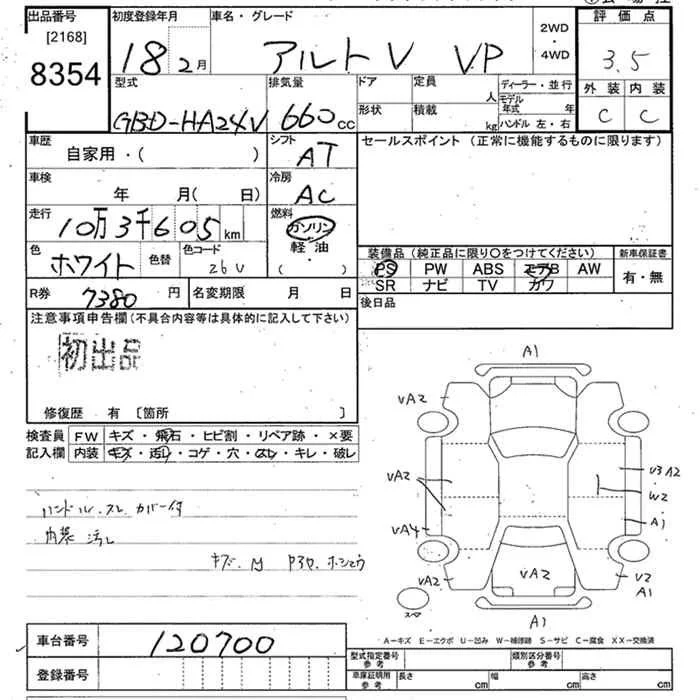 出品番号 初度登録年月 車名・グレード 2WD・4WD 評価点
[2168]
8354 18年2月 アルト V VP 3.5
型式 排気量 ドア 定員 人 ディーラー・並行 外装 内装
GBD-HA24V 660cc 形状 積載 kg モデル年式 年 ハンドル 左・右 C C
車歴 シフト セールスポイント (正常に機能するものに限ります)
自家用・( ) AT
車検 冷房
年 月( 日) AC
走行 燃料
10万3千605km ガソリン・軽油・( )
色 色替 色コード 装備品 (純正品に限り〇をつけてください) 新車保証書
ホワイト 26U PS PW ABS エアB AW 有・無
SR ナビ TV カワ
R券 7380円 名変期限 月 日 後日品
注意事項申告欄(不具合内容等は具体的に記入して下さい)
初出品
修復歴 有 [箇所 ]
検査員 FW キズ・飛石・ヒビ割・リペア跡・×要
記入欄 内装 キズ・汚レ・コゲ・穴・スレ・キレ・破レ
ハンドル・スレ カバー付
内装 汚レ
A1
UA2
UA2
UA4
UA2
UA2
U3 A2
W2
A1
U2
A1
A1
車台番号 120700
A-キズ E-エクボ U-凹み W-補修跡 S-サビ C-腐食 XX-交換済
登録番号
型式指定番号 参考 類別区分番号 参考
車庫証明用 参考 長さ cm 幅 cm 高さ cm